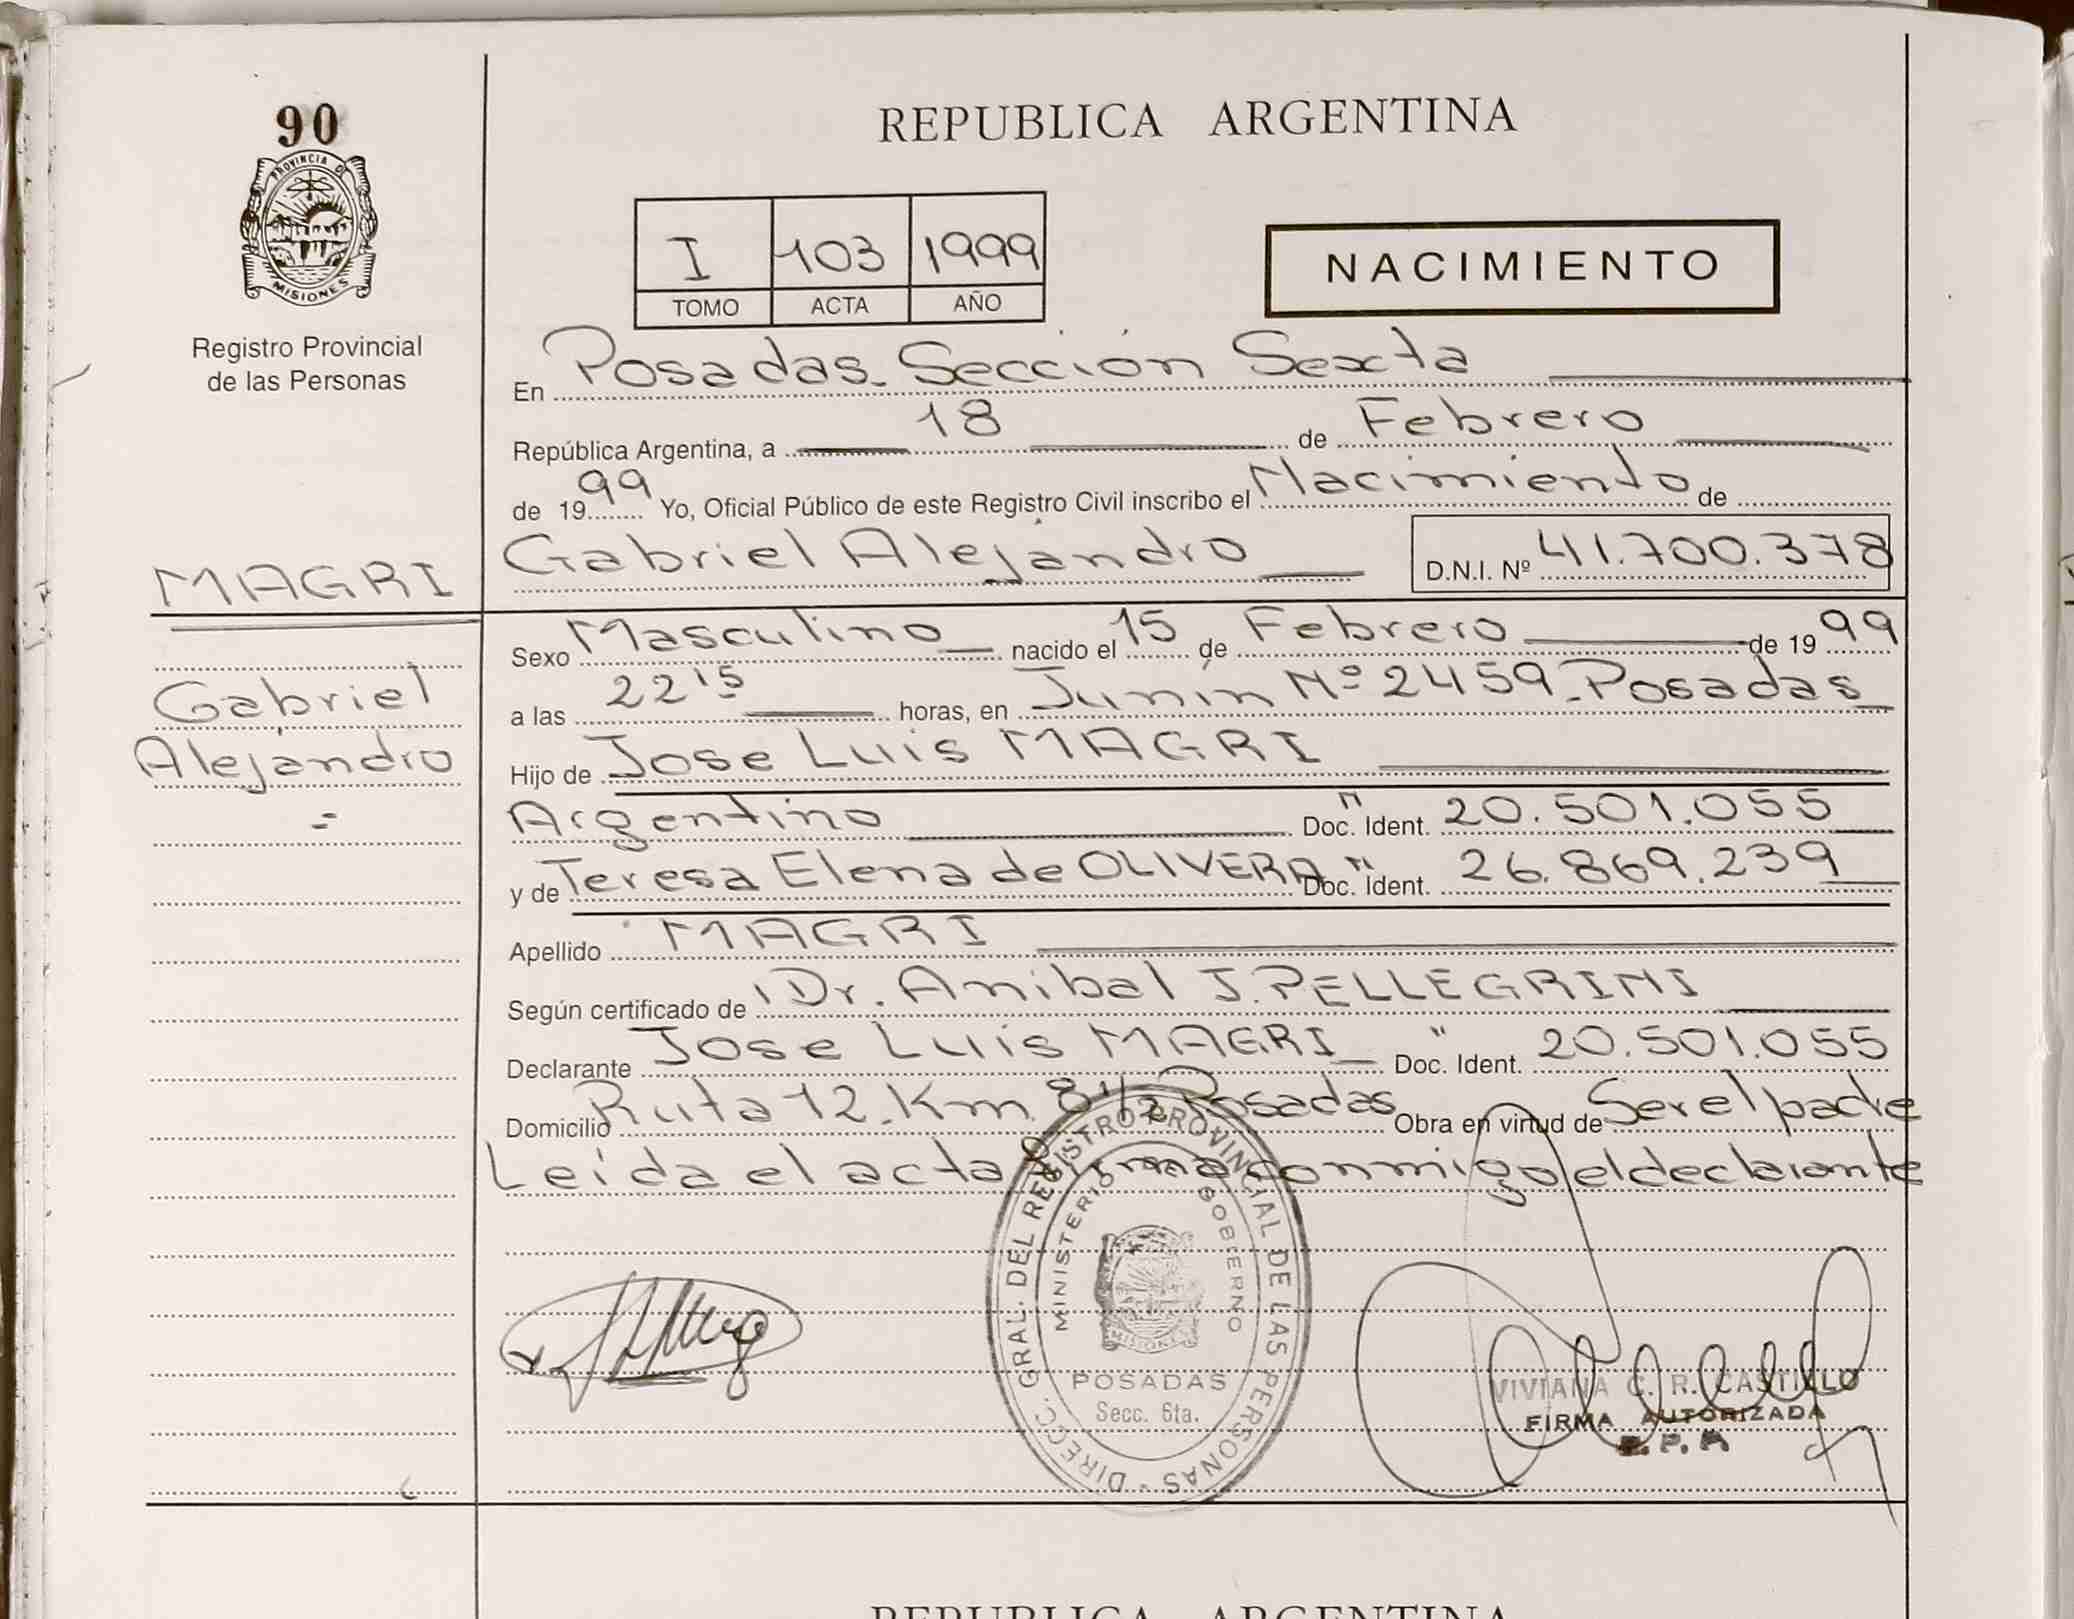 90
PROVINCIA DE
MISIONES
Registro Provincial
de las Personas
MAGRI
Gabriel
Alejandro
REPUBLICA ARGENTINA
I 103 1999
TOMO ACTA AÑO
NACIMIENTO
En Posadas. Sección Sexta
República Argentina, a 18 de Febrero
de 1999 Yo, Oficial Público de este Registro Civil inscribo el Nacimiento de
Gabriel Alejandro D.N.I. Nº 41.700.378
Sexo Masculino nacido el 15 de Febrero de 1999
a las 22 15 horas, en Junin Nº 2459. Posadas
Hijo de Jose Luis MAGRI
Argentino Doc. Ident. " 20.501.055
y de Teresa Elena de OLIVERA Doc. Ident. " 26.869.239
Apellido MAGRI
Según certificado de Dr. Anibal J. PELLEGRINI
Declarante Jose Luis MAGRI Doc. Ident. " 20.501.055
Domicilio Ruta 12. Km 8 1/2 Posadas Obra en virtud de Ser el padre
Leida el acta firma conmigo el declarante
DIRECC. GRAL. DEL REGISTRO PROVINCIAL DE LAS PERSONAS -
MINISTERIO DE GOBIERNO
MISIONES
POSADAS
Secc. 6ta.
VIVIANA C. R. CASTILLO
FIRMA AUTORIZADA
REPUBLICA ARGENTINA